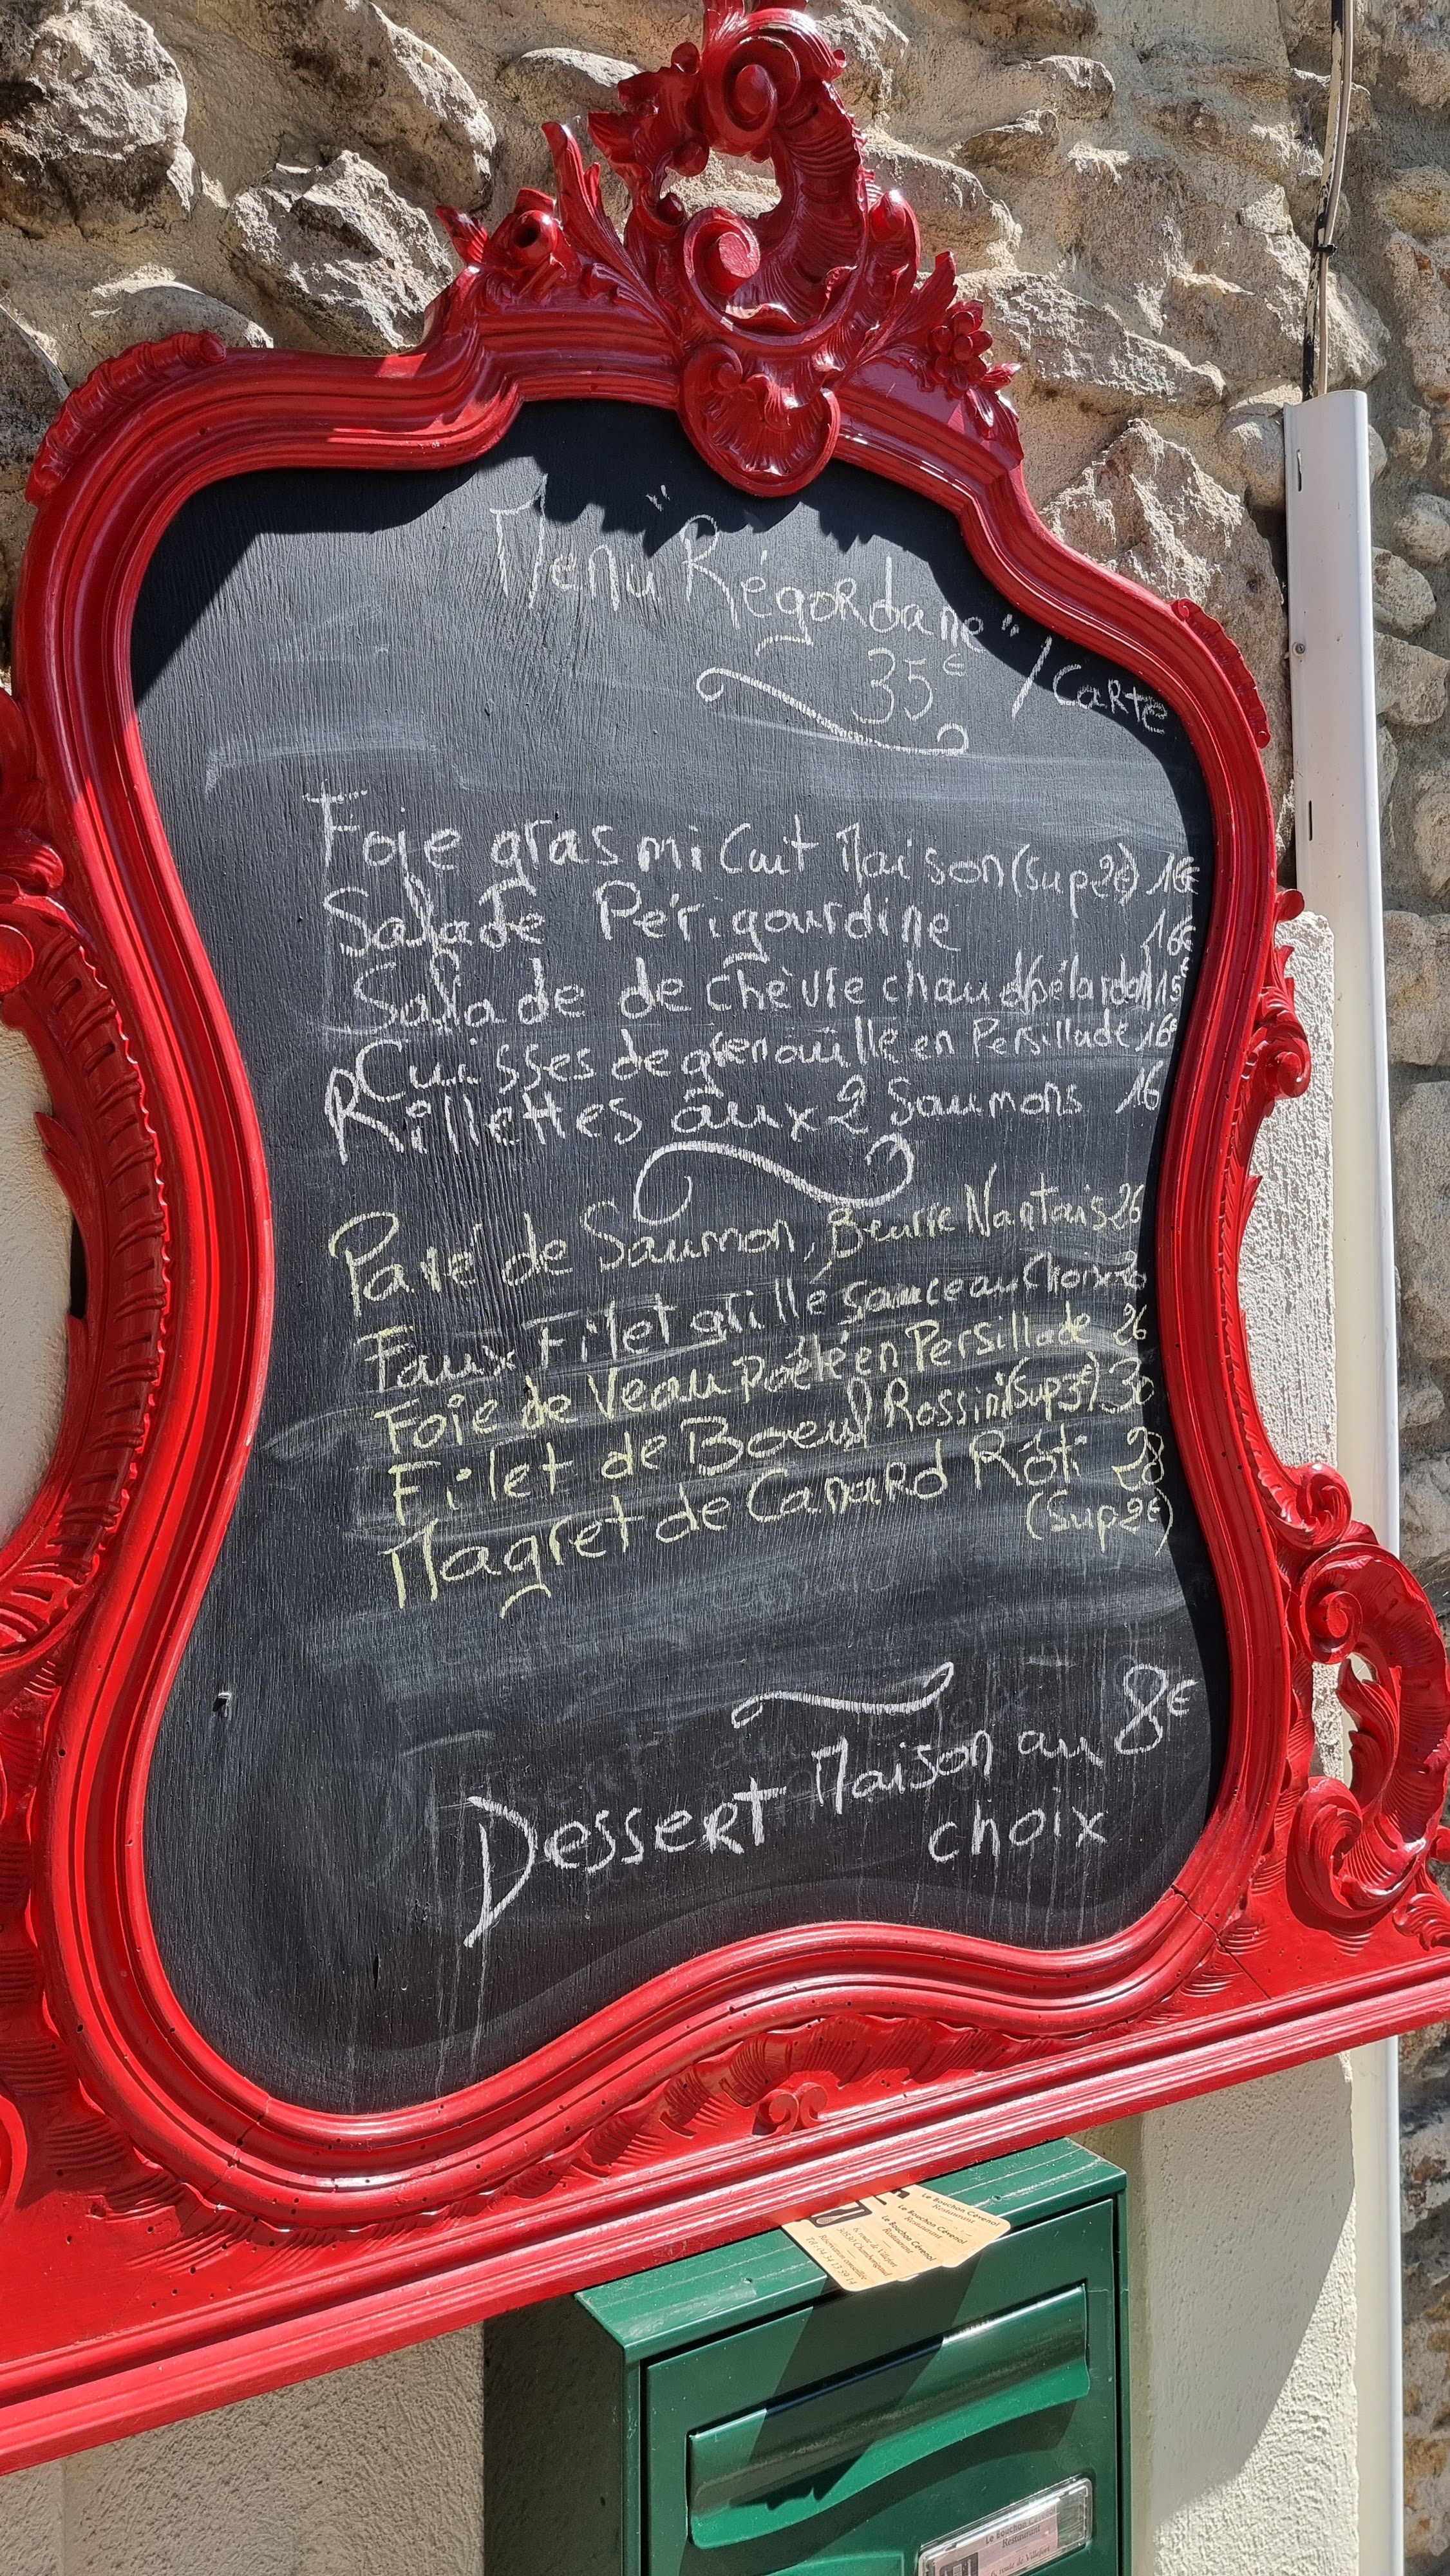 Menu "Régordane"
35€ / Carte
Foie gras mi Cuit Maison (Sup 2€) 16€
Salade Périgourdine 16€
Salade de chèvre chaud (pélardon) 15€
Cuisses de grenouille en Persillade 16€
Rillettes aux 2 Saumons 16
Pavé de Saumon, Beurre Nantais 26
Faux Filet grillé sauce au Choix
Foie de Veau poêlé en Persillade 26
Filet de Boeuf Rossini (Sup 3€) 30
Magret de Canard Rôti 28
(Sup 2€)
Dessert Maison au 8€
choix
Le Bouchon Cévenol
Restaurant
Le Bouchon Cévenol
Restaurant
6, route de Villefort
Chamborigaud
Le Bouchon
Restaurant
6, route de Villefort